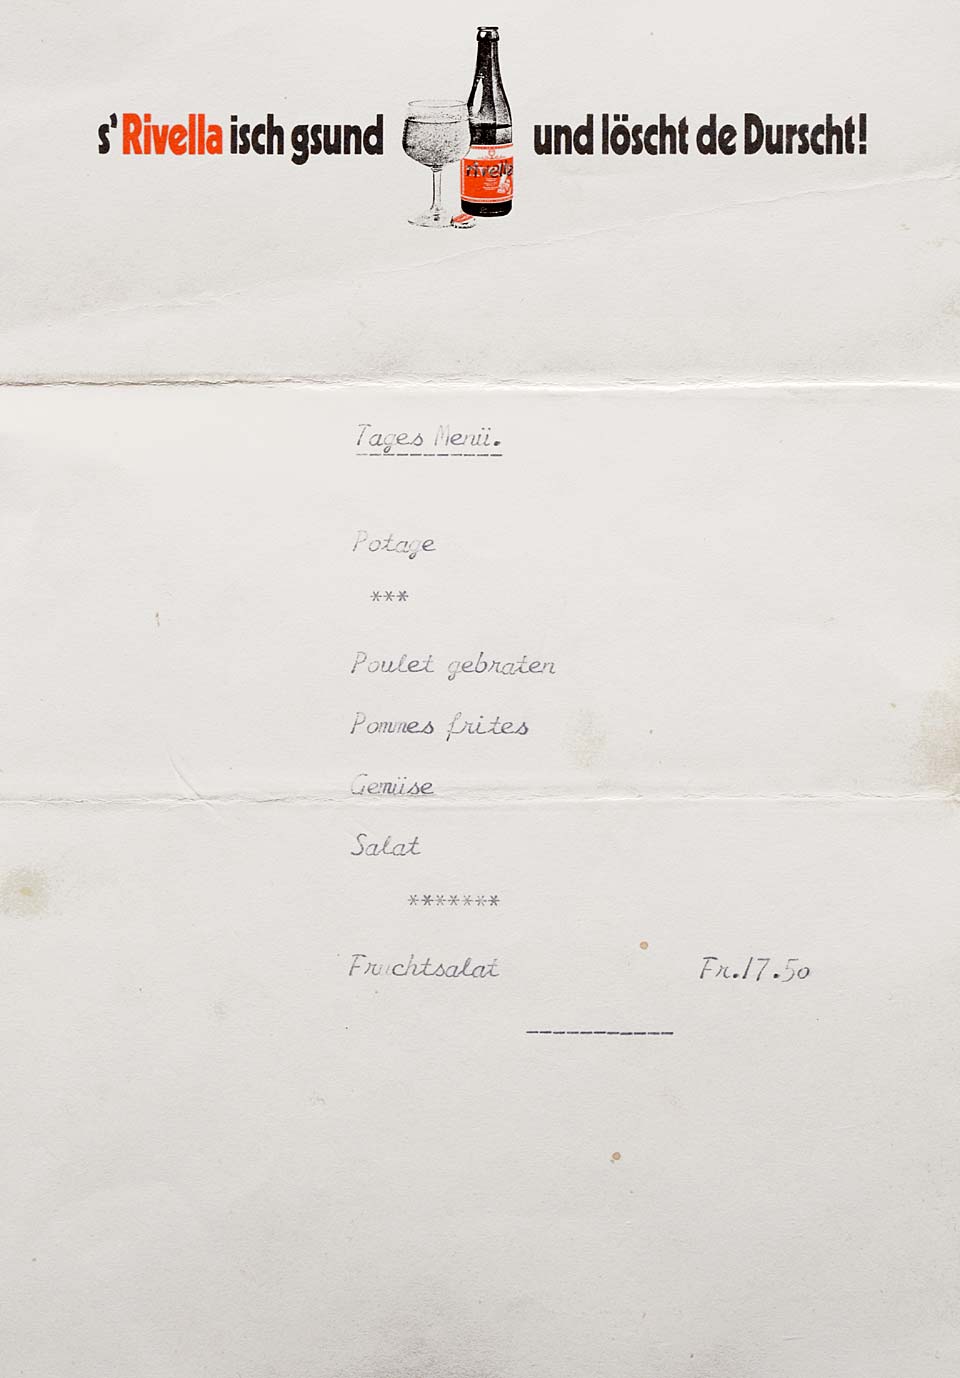 s' Rivella isch gsund und löscht de Durscht!
rivella
Tages Menü.
Potage
***
Poulet gebraten
Pommes frites
Gemüse
Salat
*******
Fruchtsalat Fr.17.50